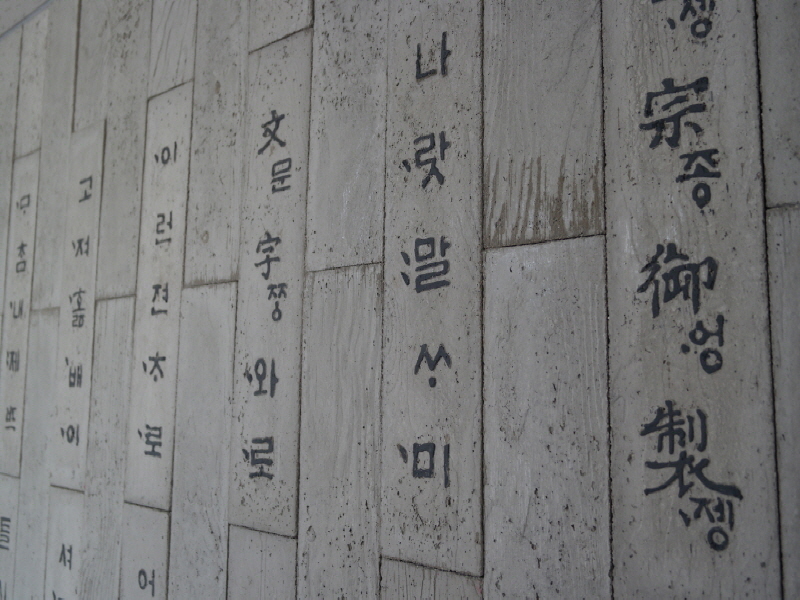 宗종御엉〮製졩〮
나랏〮말〯ᄊᆞ미〮
文문字ᄍᆞᆼ〮와〮로〮
이〮런젼ᄎᆞ〮로〮
어
고져〮호ᇙ배〮이〮
셔
ᄆᆞᄎᆞᆷ〮내〯제ᄠᅳ